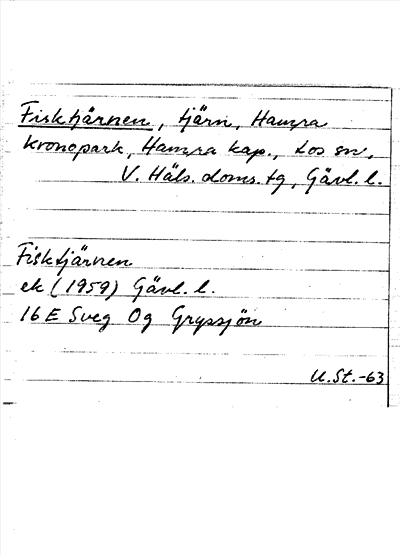 Fisktjärnen, tjärn, Hamra
kronopark, Hamra kap., Los sn,
V. Häls. doms. tg, Gävl. l.
Fisktjärnen
ek (1959) Gävl. l.
16E Sveg 0g Gryssjön
U.St.-63